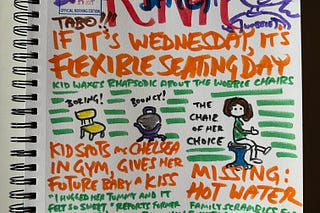 TABO!!!
WOBBLE
IF IT'S WEDNESDAY, IT'S
FLEXIBLE SEATING DAY
KID WAXES RHAPSODIC ABOUT THE WOBBLE CHAIRS
BORING!
BOUNCY!
THE
CHAIR
OF HER
CHOICE
KID SPOTS MS CHELSEA
IN GYM, GIVES HER
FUTURE BABY A KISS
"I HUGGED HER TUMMY AND IT
FELT SO SWEET," REPORTS FORMER
MISSING:
HOT WATER